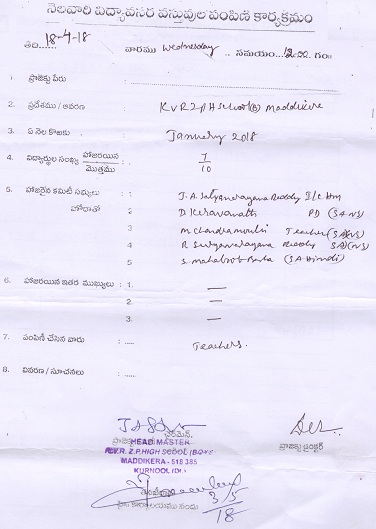 నెలవారి విద్యావసర వస్తువుల పంపిణి కార్యక్రమం
తేది: 18-4-18 వారము Wednesday సమయం 12-00 గం॥
1. ప్రాజెక్టు పేరు :
2. ప్రదేశము / ఆవరణ : K V R Z P H School (B) Maddikera
3. ఏ నెల కొఱకు : January 2018
4. విద్యార్థుల సంఖ్య హాజరయిన / మొత్తము : 7/10
5. హాజరైన కమిటీ సభ్యులు : 1 J. A. Satyanarayana Reddy I/c Hm
హోదాతో 2 D Kesavanath PD (SANS)
3 M Chandramouli Teacher (SANS)
4 R Suryanarayana Reddy SA (NS)
5 S. Mahaboob Basha (SA Hindi)
6. హాజరయిన ఇతర ముఖ్యులు : 1. —
2. —
3. —
7. పంపిణీ చేసిన వారు : ..... Teachers.
8. వివరణ / సూచనలు : .....
ఛైర్మన్,
ప్రాజెక్టు డైరెక్టర్
HEAD MASTER
K.V.R. Z.P. HIGH SCHOOL (BOYS)
MADDIKERA - 518 385
KURNOOL (Dt.)
3/5/18